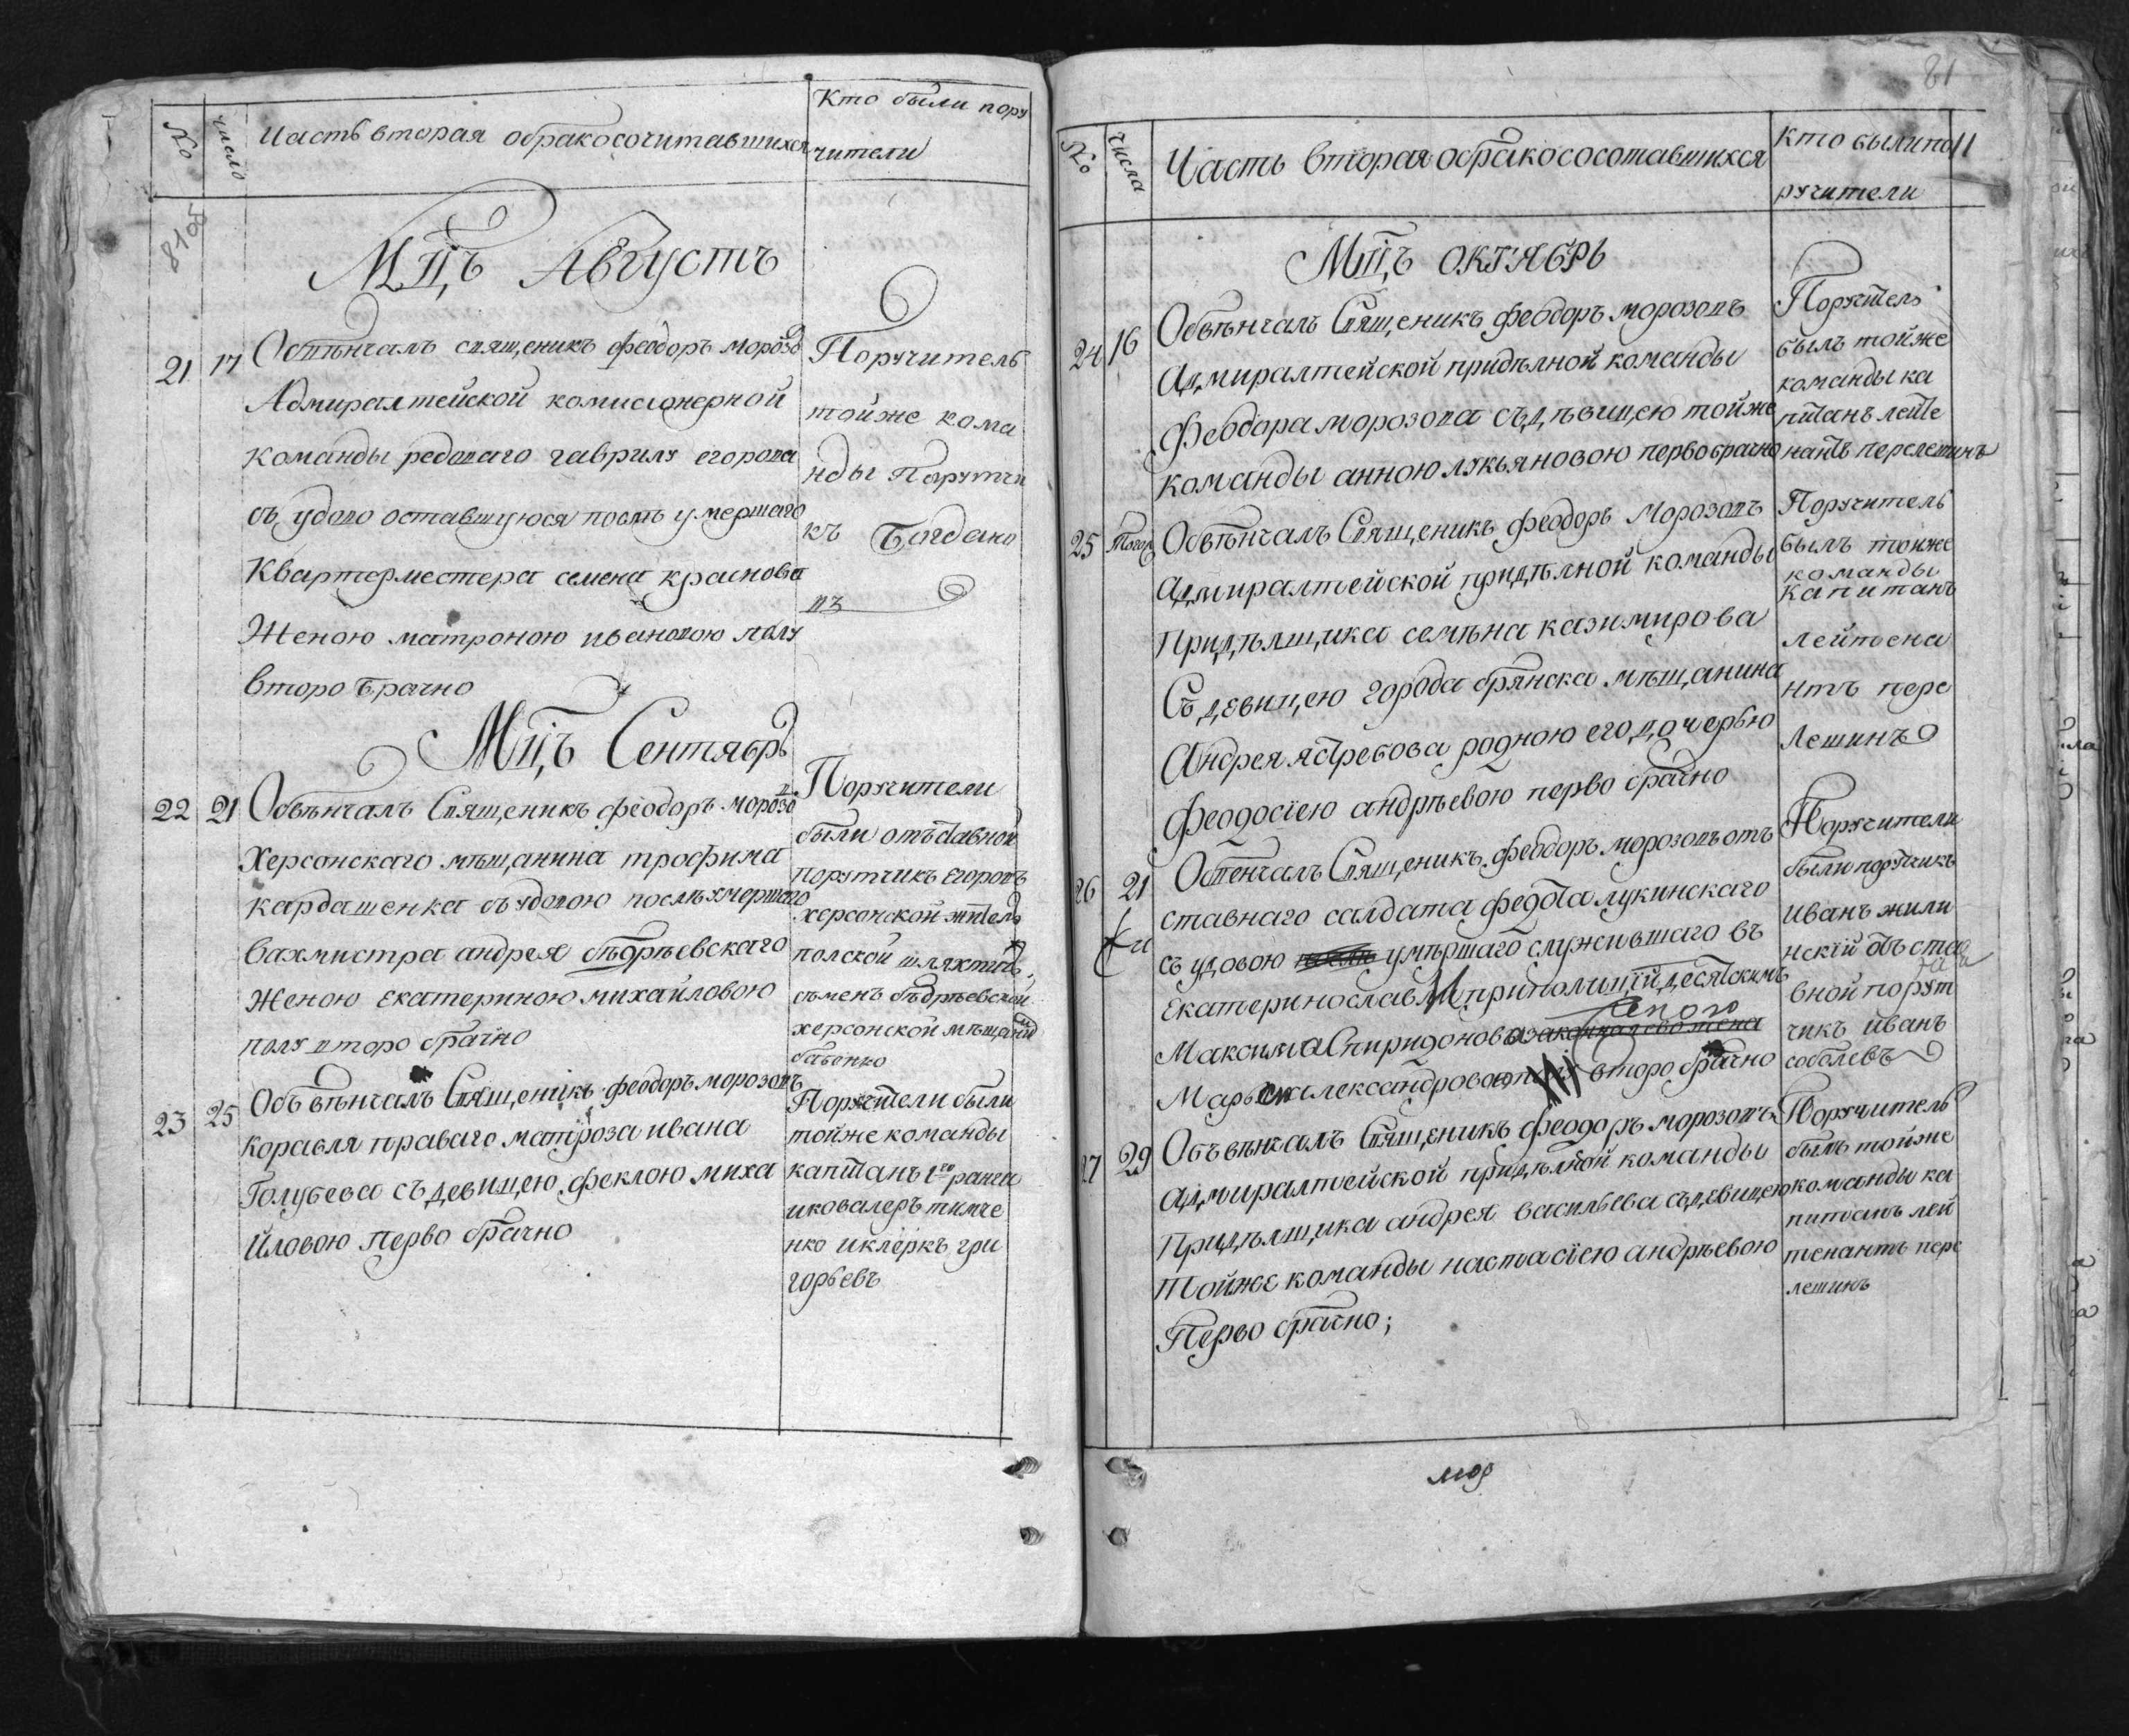 Кто были пору
№ число Часть вторая обракосочитавшихся чители
8105
Мцъ Августъ
21 17 Обвѣнчалъ священикъ феодоръ морозо
Адмиралтейской комисионерной
команды редоваго гаврилу егорова
съ удово оставшуюся послѣ умершаго
Квартерместера семена краснова
Женою матроною ивановою полу
второ брачно
Поручитель
тойже кома
нды Порутчи
къ Богдано
въ
Мцъ Сентябрь
22 21 Обвѣнчалъ Священикъ феодоръ морозо
Херсонскаго мѣщанина трофима
кардашенка съ удовою послѣ умершаго
вахмистра андрея
Женою екатериною михайловою
полу второ брачно
Поручители
были отъставной
порутчикъ егоровъ
херсонской жител
полской шляхтичь
сѣменъ
херсонской мѣщани
бабенко
23 25 Объвѣнчалъ Священикъ феодоръ морозовъ
корабля праваго матроза ивана
Голубева съ девицею феклою миха
йловою перво брачно
Поручители были
тойже команды
капитанъ 1го ранга
иковалеръ тимче
нко иклеркъ гри
горьевъ
81
№ числа Часть вторая обракососотавшихся кто былипо 11
ручители
Мцъ октябрь
24 16 Обвѣнчалъ Священикъ феодоръ морозовъ
адмиралтейской придѣлной команды
Феодора морозова съдѣвицею тойже
команды анною лукьяновою первобрачно
Поручитель
былъ тойже
команды ка
питанъ лейте
нантъ перелешинъ
25 Тогож Обвѣнчалъ Священикъ феодоръ Морозовъ
адмиралтейской придѣлной команды
Придѣлщика семѣна казимирова
Съ девицею города брянска мѣщанина
Андрея ястребова родною его дочерью
феодосіею андрѣевою перво брачно
Поручитель
былъ тоиже
команды
капитанъ
лейтена
нтъ пере
Лешинъ
26 21 Обвенчалъ Священикъ феодоръ морозовъ от
ставнаго салдата федота лукинскаго
съ удовою умѣршаго служившаго въ
екатеринославли приполицїй десятскимъ
Максима Спиридонова женою
Марьею александровою второ брачно
Поручители
были порутчикъ
иванъ жили
нскїй объ ста
вной порут
чикъ иванъ
соболевъ
27 29 Объвѣнчалъ Священикъ феодоръ морозовъ
адмиралтейской придѣлной команды
Придѣлщика андрея васильева съдевицею
тойже команды настасїею андрѣевою
Перво брачно;
Поручитель
былъ тойже
команды ка
питанъ лей
тенантъ пере
лешинъ